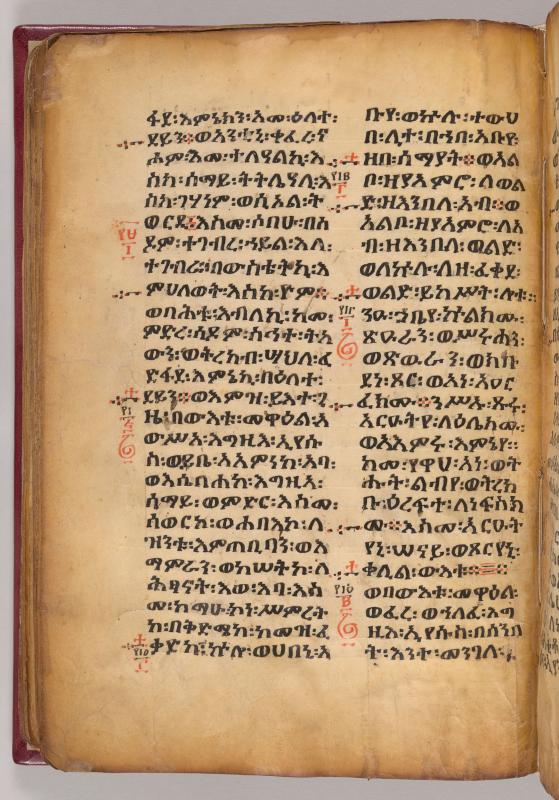 ፋደ፡እምኔክን፡አመ፡ዕለት፡
ደይን።ወአንቲኒ፡ቀፈረና
ሖም፡እመ፡ተለዓልኪ፡እ
ስከ፡ሰማይ፡ትትሌዓሊ፡እ
ስከ፡ገሃነም፡ወሲኦል፡ት
ወርዲ።እስመ፡ሶበሁ፡በሰ
ዶም፡ተገብረ፡ኃይል፡እለ፡
ተገብራ፡በውስቴትኪ፡እ
ምሀለወት፡እስከ፡ዮም።
ወባሕቱ፡እብለኪ፡ከመ፡
ምድረ፡ሰዶም፡ትአ
ውን፡ወትረክብ፡ሣህለ፡ፈ
ድፋደ፡እምኔኪ፡በዕለተ፡
ደይን።ወእምዝ፡ይእተ፡ጊ
ዜ፡በውእቱ፡መዋዕል፡አ
ውሥአ፡እግዚእ፡ኢየሱ
ስ፡ወይቤ፡አአምነከ፡አባ፡
ወእሴባሐከ፡እግዚአ፡
ሰማይ፡ወምድር፡እስመ፡
ሰወርከ፡ወሐባእኮ፡ለ
ዝንቱ፡እምጠቢባን፡ወእ
ማምራን፡ወከሠትከ፡ለ
ሕፃናት፡እወ፡አባ፡እስ
መ፡ከማሁ፡ኮነ፡ሥምረት
ከ፡በቅድሜከ፡ከመዝ፡ፈ
ቀድከ፡ኵሎ፡ወሀበኒ፡አ
ቡየ፡ወኵሉ፡ተውህ
በ፡ሊተ፡በኀበ፡አቡየ፡
ዘበ፡ሰማያት።ወአል
ቦ፡ዘያአምሮ፡ለወል
ድ፡ዘእንበለ፡አብ።ወ
አልቦ፡ዘያአምሮ፡ለአ
ብ፡ዘእንበለ፡ወልድ፡
ወለኵሉ፡ለዘ፡ፈቀደ፡
ወልድ፡ይከሥት፡ሎቱ።
ንዑ፡ኀቤየ፡ኵልክሙ፡
ጽዑራን፡ወሥሩሓን፡
ወጽዉራን፡ወክቡ
ደነ፡ጾር፡ወአነ፡አዐር
ፈክሙ።ንሥኡ፡ጾሩ፡
አርዑትየ፡ለዕሌክሙ፡
ወአእምሩ፡እምኔየ።
ከመ፡የዋህ፡አነ፡ወት
ሑት፡ልብየ፡ወትረክ
ቡ፡ዕረፍተ፡ለነፍስክ
ሙ።እስመ፡አርዑት
የኒ፡ሠናይ፡ወጾርየኒ፡
ቀሊል፡ውእቱ።
ወበውእቱ፡መዋዕል፡
ወፈረ፡ወኀለፈ፡እግ
ዚእ፡ኢየሱስ፡በሰንበ
ት፡እንተ፡መንገለ፡